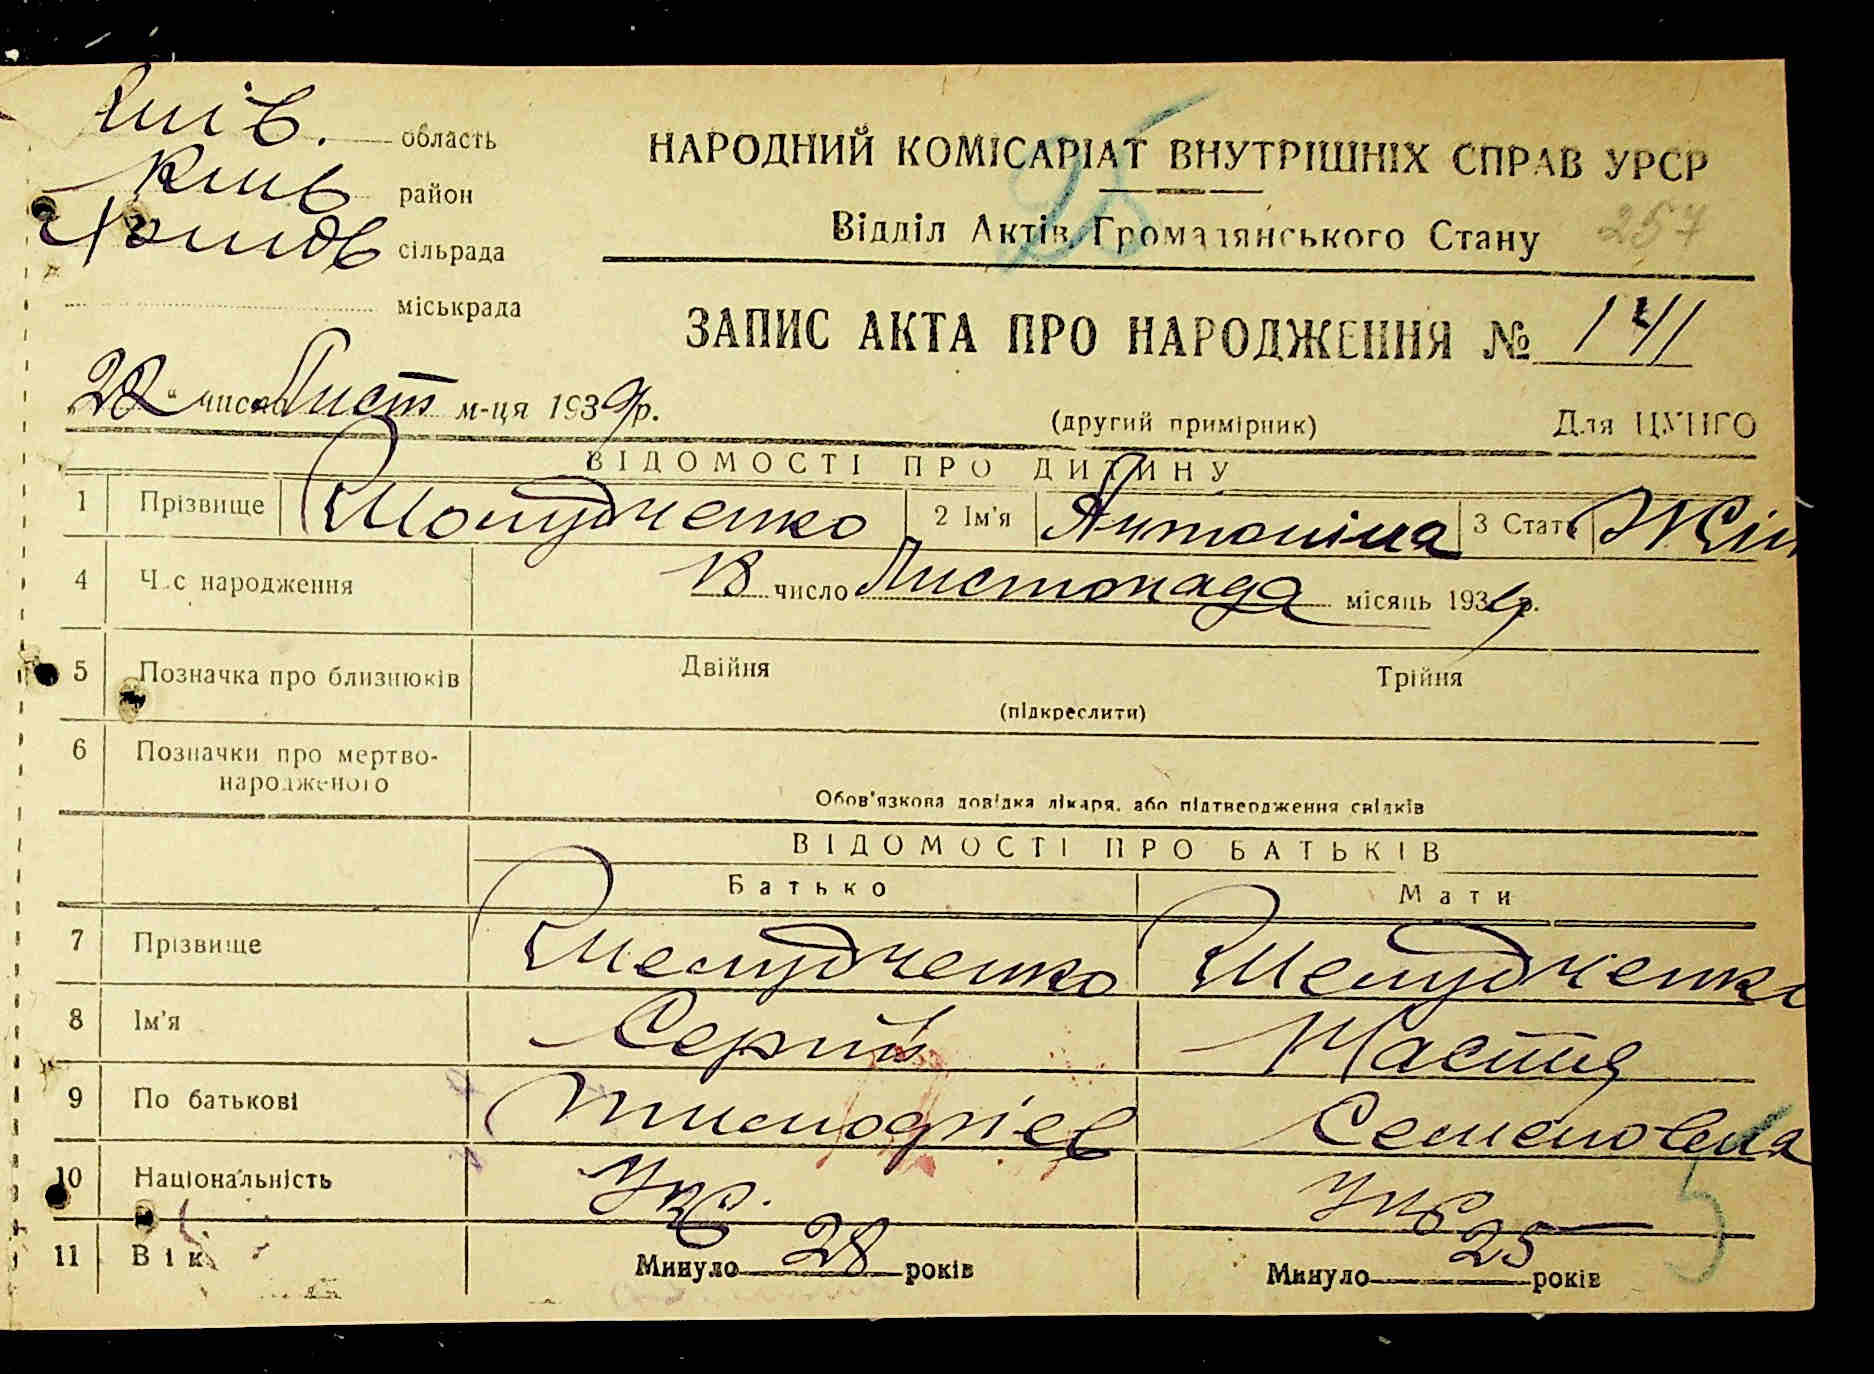 Київ. область
Київ район
сільрада
міськрада
НАРОДНИЙ КОМІСАРІАТ ВНУТРІШНІХ СПРАВ УРСР
Відділ Актів Громадянського Стану
257
25
ЗАПИС АКТА ПРО НАРОДЖЕННЯ № 141
"28" числа Лист м-ця 1939 р.
(другий примірник) Для ЦУНГО
ВІДОМОСТІ ПРО ДИТИНУ
1 Прізвище Шолудченко 2 Ім'я Антоніна 3 Стать Жін
4 Час народження 18 число Листопада місяць 1939 р.
5 Позначка про близнюків Двійня Трійня
(підкреслити)
6 Позначки про мертво-
народженого
Обов'язкова довідка лікаря, або підтвердження свідків
ВІДОМОСТІ ПРО БАТЬКІВ
Батько Мати
7 Прізвище Шелудченко Шелудченко
8 Ім'я Сергій Настя
9 По батькові Тимофіїв Семеновна
10 Національність Укр. Укр
11 Вік Минуло 28 років Минуло 25 років
5